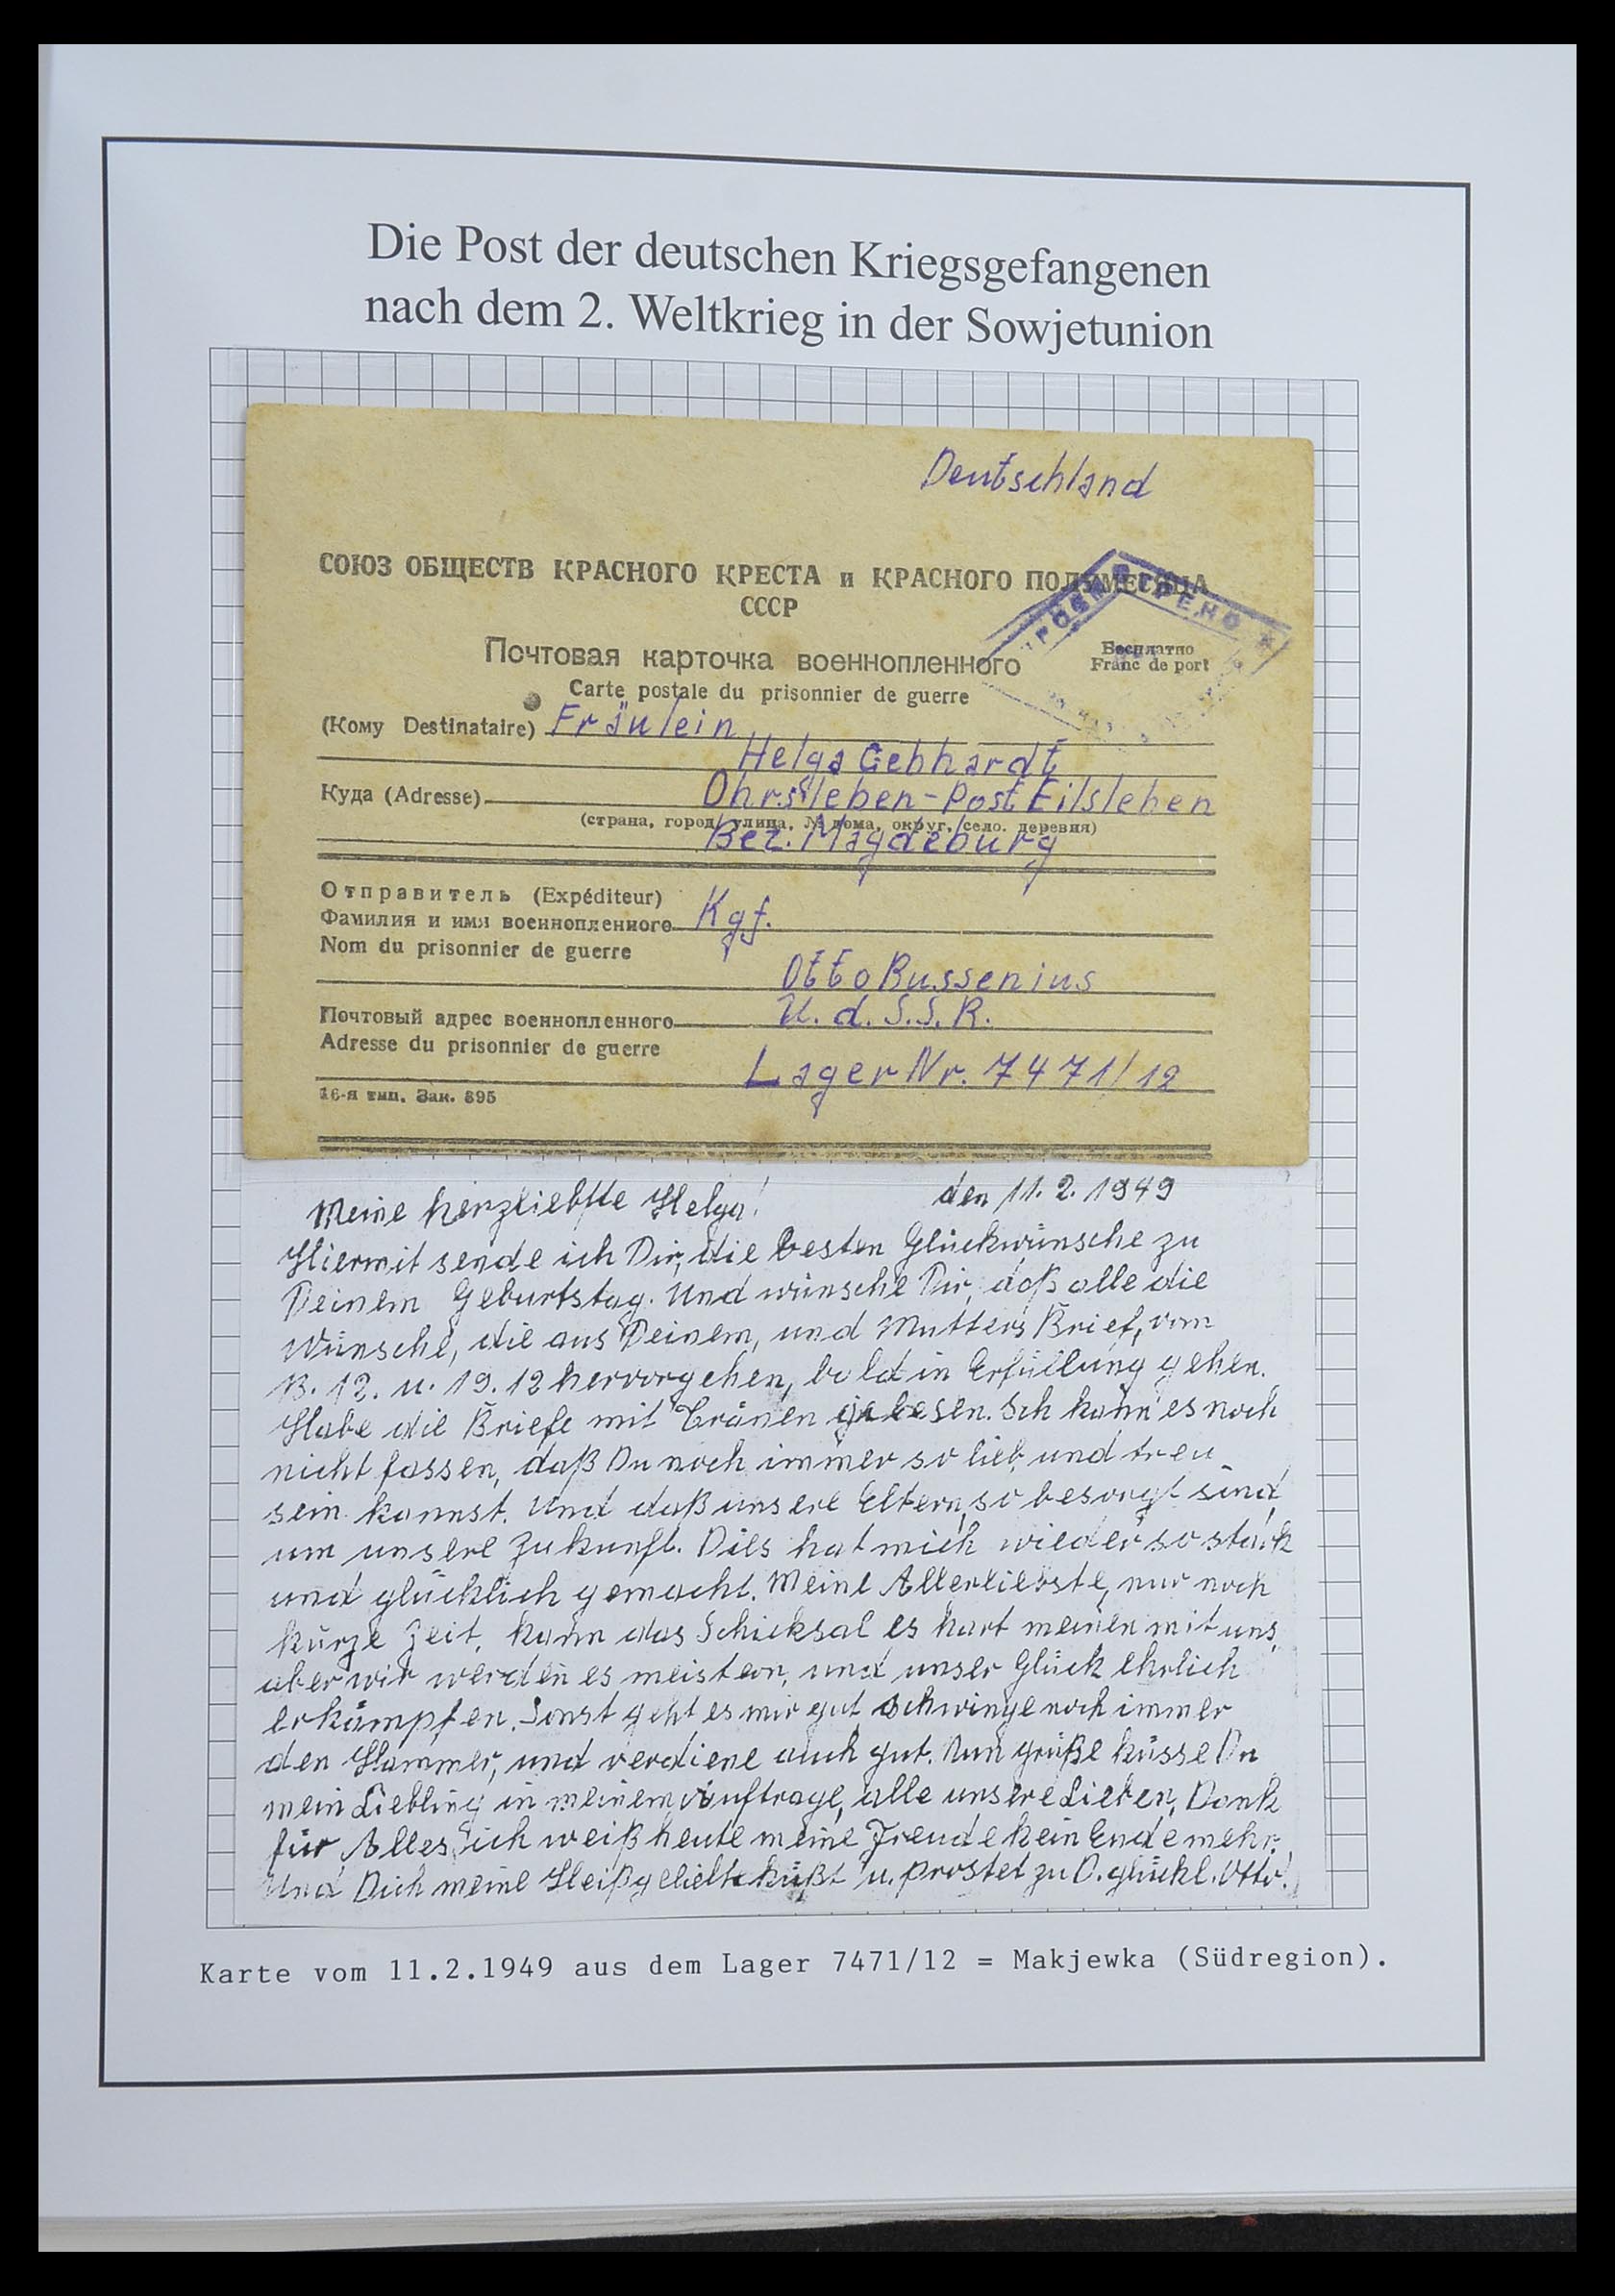 Die Post der deutschen Kriegsgefangenen
nach dem 2. Weltkrieg in der Sowjetunion
Deutschland
СОЮЗ ОБЩЕСТВ КРАСНОГО КРЕСТА и КРАСНОГО ПОЛУМЕСЯЦА
СССР
ПРОСМОТРЕНО
Почтовая карточка военнопленного
Бесплатно
Franc de port
Carte postale du prisonnier de guerre
(Кому Destinataire) Fräulein
Helga Gebhardt
Куда (Adresse) Ohrsleben-Post Eilsleben
(страна, город, улица, № дома, округ, село, деревня)
Bez. Magdeburg
Отправитель (Expéditeur)
Фамилия и имя военнопленного Kgf.
Nom du prisonnier de guerre
Otto Bussenius
Почтовый адрес военнопленного U.d.S.S.R.
Adresse du prisonnier de guerre
Lager Nr. 7471/12
16-я тип. Зак. 895
Meine herzliebste Helga! den 11.2.1949
Hiermit sende ich Dir, die besten Glückwünsche zu
Deinem Geburtstag. Und wünsche Dir, daß alle die
Wünsche, die aus Deinem, und Mutters Brief, vom
13.12. u. 19.12 hervorgehen, bald in Erfüllung gehen.
Habe die Briefe mit Tränen gelesen. Ich kann es noch
nicht fassen, daß Du noch immer so lieb und treu
sein kannst. Und daß unsere Eltern, so besorgt sind,
um unsere Zukunft. Dies hat mich wieder so stark
und glücklich gemacht. Meine Allerliebste, nur noch
kurze Zeit, kann das Schicksal es hart meinen mit uns,
aber wir werden es meistern, und unser Glück ehrlich
erkämpfen. Sonst geht es mir gut, schwinge noch immer
den Hammer, und verdiene auch gut. Nun grüße küsse Du
mein Liebling in meinem Auftrage, alle unsere Lieben, Dank
für Alles, ich weiß heute meine Freude kein Ende mehr.
Und Dich meine Heißgeliebte küßt u. prostet zu D. glückl. Otto!
Karte vom 11.2.1949 aus dem Lager 7471/12 = Makjewka (Südregion).